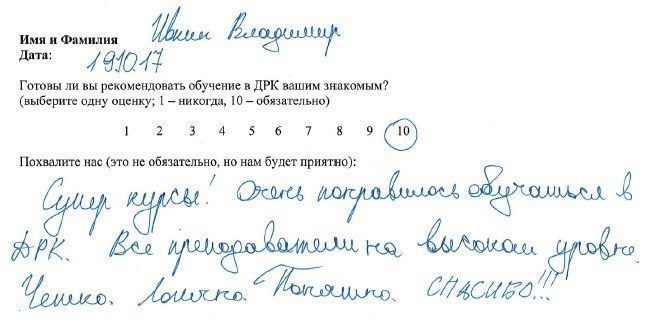 Имя и Фамилия Ивкин Владимир
Дата: 19.10.17
Готовы ли вы рекомендовать обучение в ДРК вашим знакомым?
(выберите одну оценку; 1 – никогда, 10 – обязательно)
1 2 3 4 5 6 7 8 9 10
Похвалите нас (это не обязательно, но нам будет приятно):
Супер курсы! Очень понравилось обучаться в
ДРК. Все преподаватели на высоком уровне.
Четко. Логично. Понятно. СПАСИБО!!!